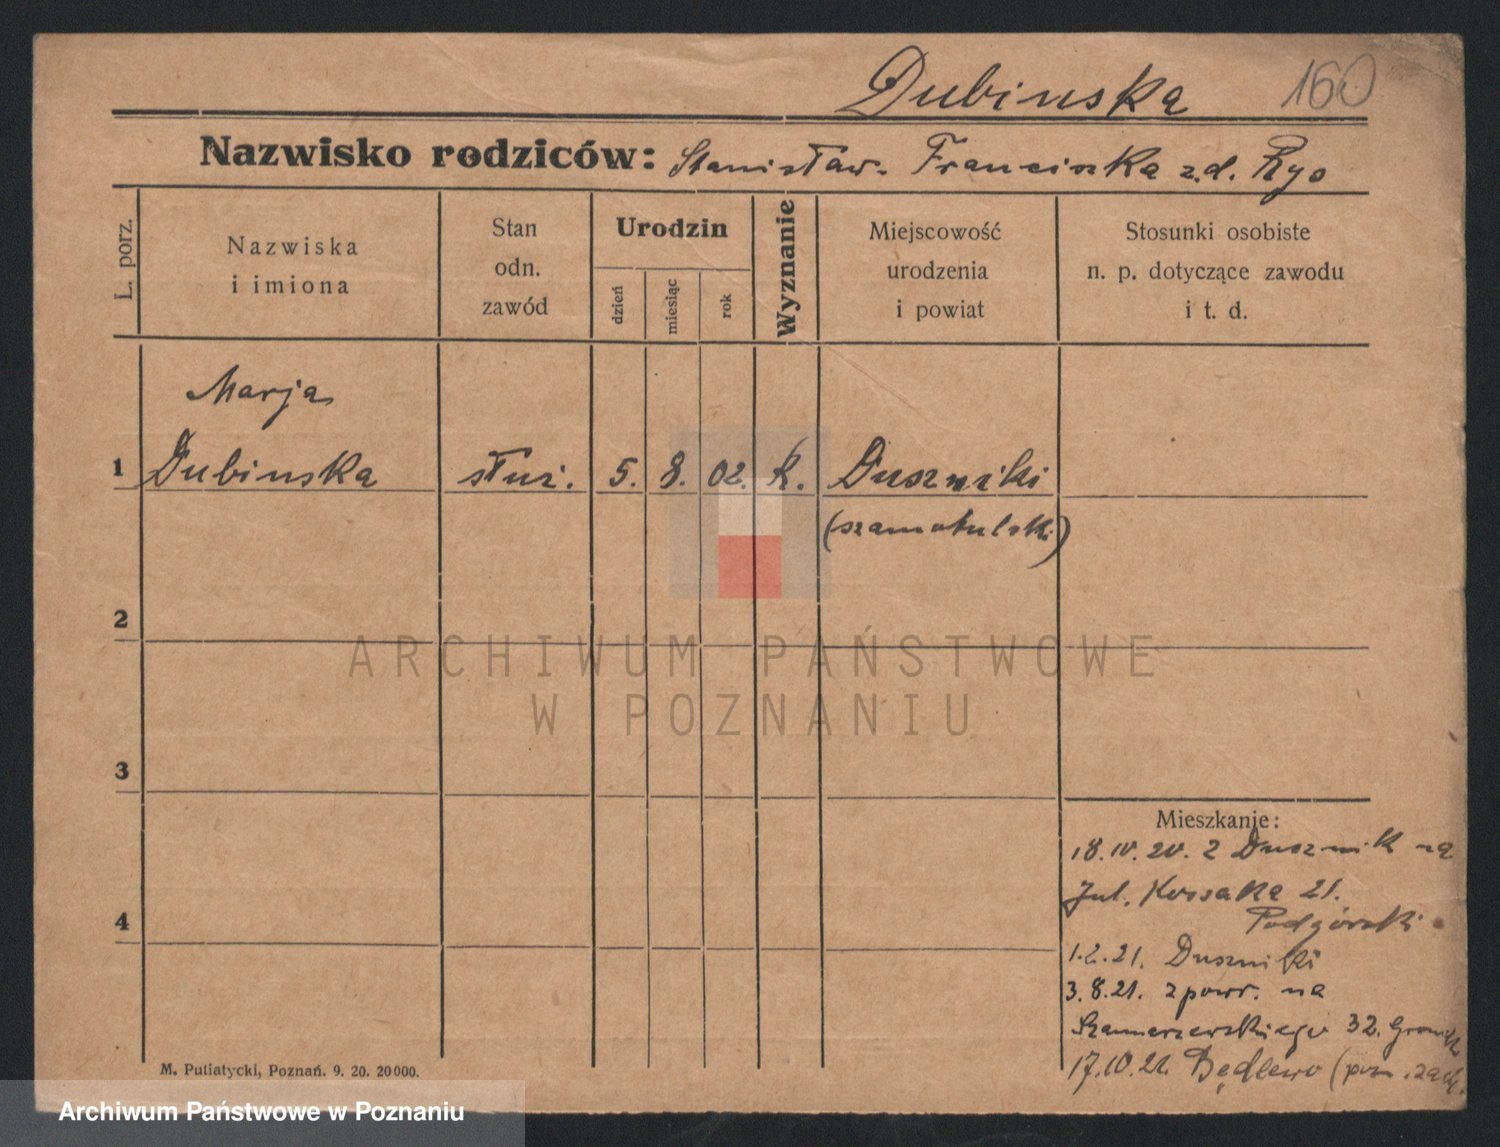 Dubinska 160
Nazwisko rodziców: Stanisław. Franciszka z.d. Ryo
L. porz.
Nazwiska
i imiona
Stan
odn.
zawód
Urodzin
dzień
miesiąc
rok
Wyznanie
Miejscowość
urodzenia
i powiat
Stosunki osobiste
n. p. dotyczące zawodu
i t. d.
Marja
1 Dubinska służ. 5. 8. 02. k. Duszniki
(szamotulski)
2
ARCHIWUM PAŃSTWOWE
W POZNANIU
3
Mieszkanie:
18.10.20. z Dusznik na
Jul. Kossaka 21.
4
Podgórski
1.2.21. Duszniki
3.8.21. z powr. na
32.
17.10.21. Będlewo (pozn. zach.
M. Putiatycki, Poznań. 9. 20. 20 000.
Archiwum Państwowe w Poznaniu